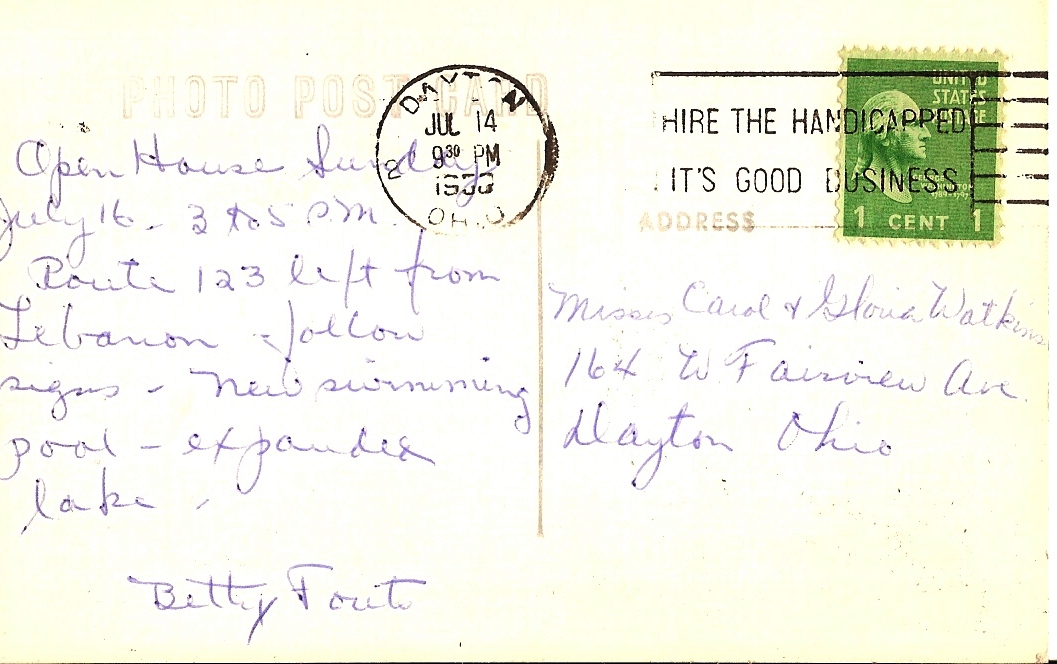 PHOTO POST CARD
DAYTON
JUL 14
9 30 PM
OHIO
HIRE THE HANDICAPPED
IT'S GOOD BUSINESS
UNITED
STATES
1 CENT 1
ADDRESS
Open House Sunday
July 16 - 3 to 5 P.M.
Route 123 left from
Lebanon - follow
signs - new swimming
pool - expanded
lake -
Betty
Misses Carol & Gloria Watkins
164 W Fairview Ave.
Dayton Ohio